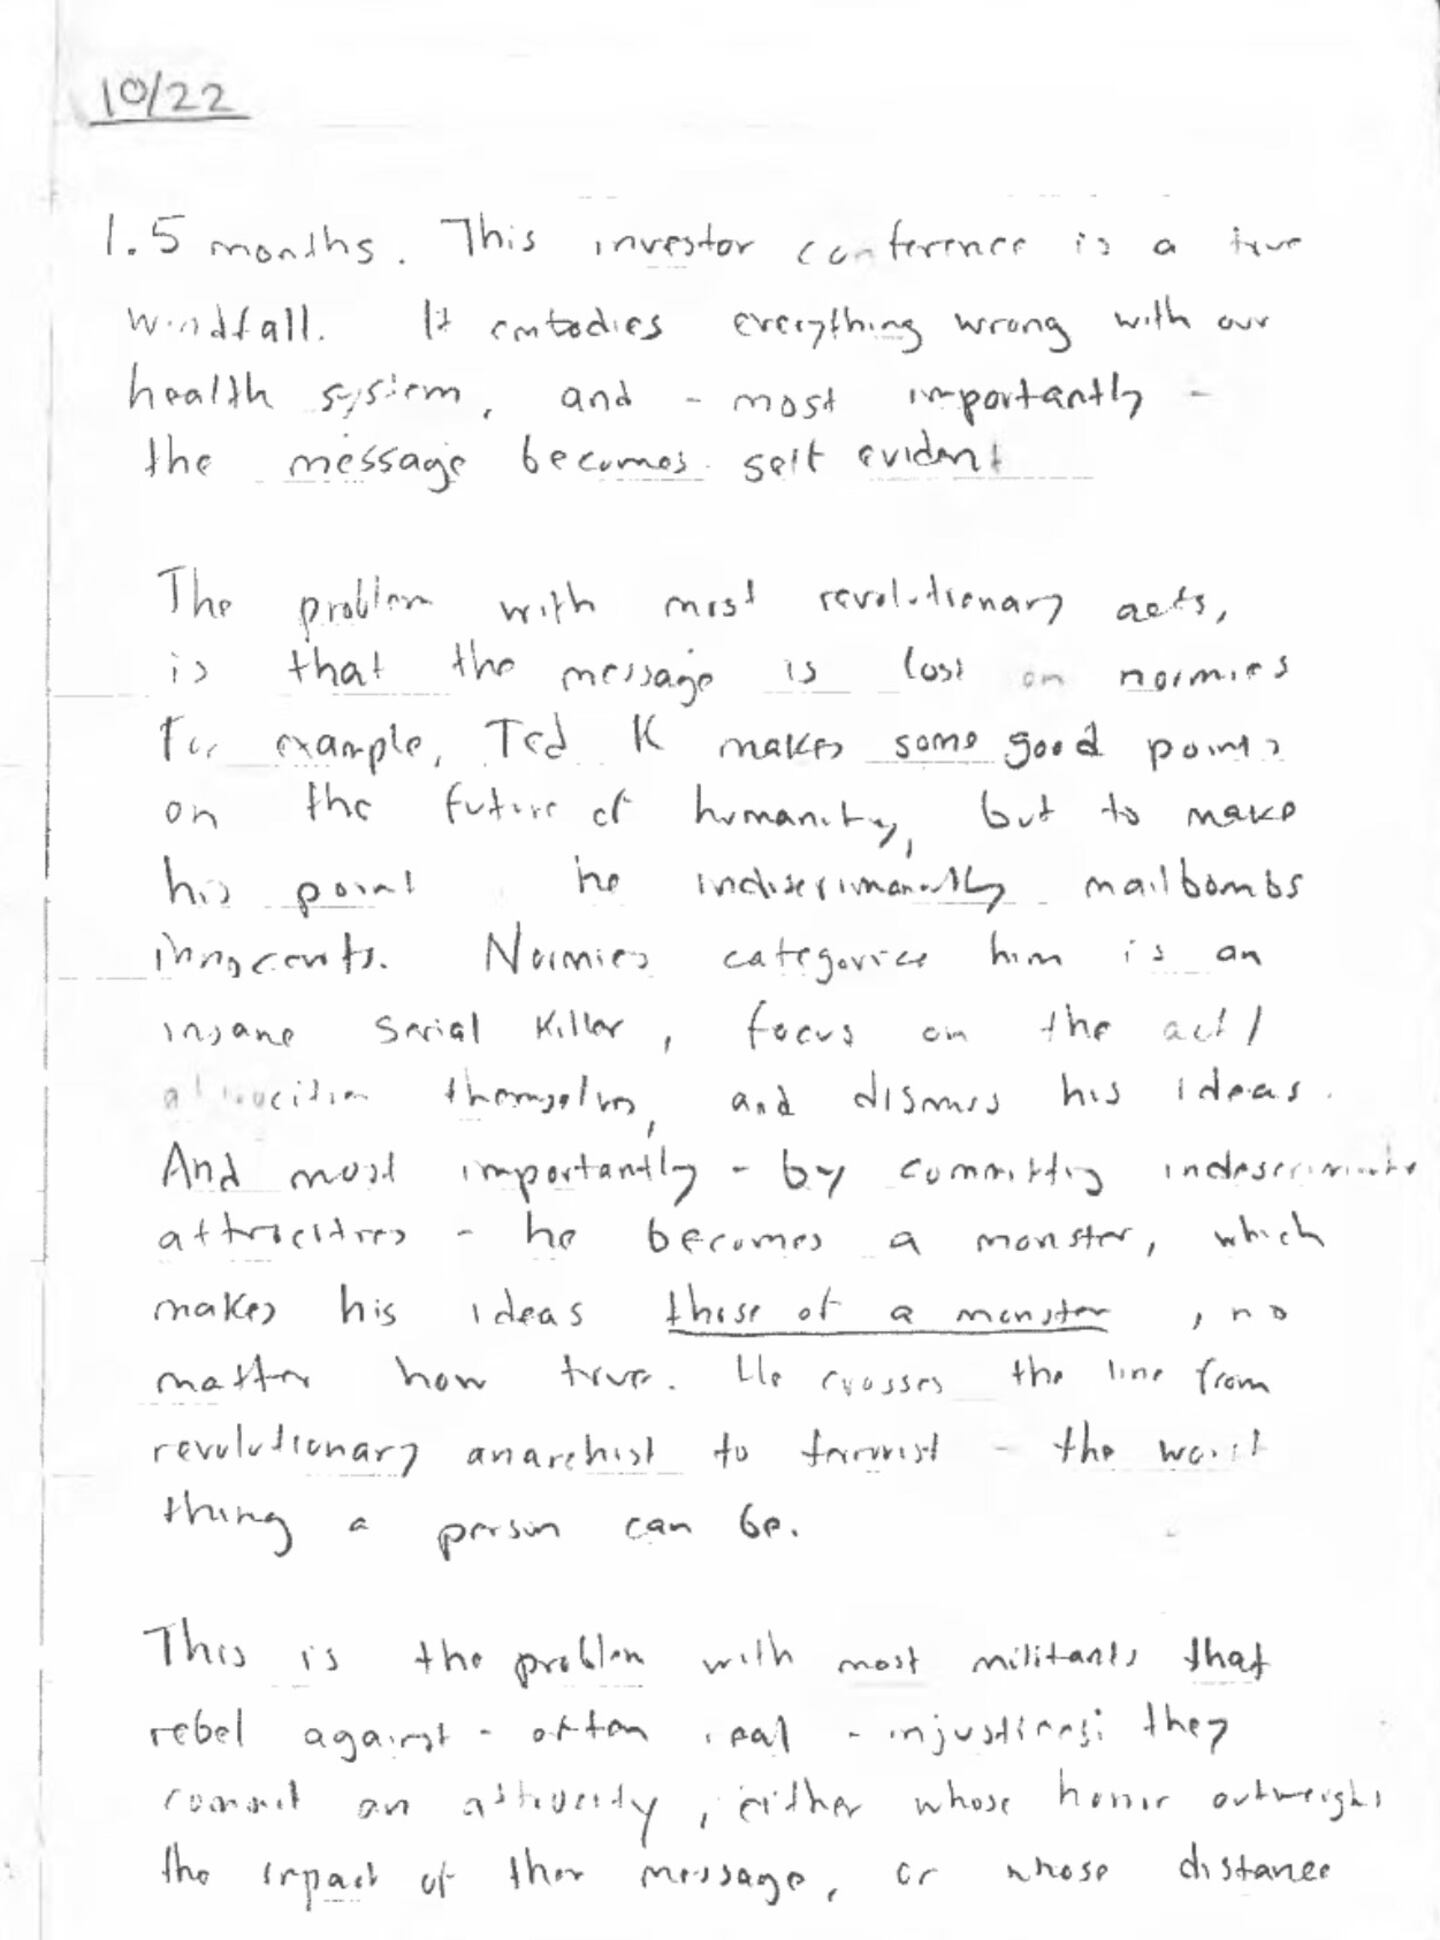 10/22
1.5 months. This investor conference is a true
windfall. It embodies everything wrong with our
health system, and - most importantly -
the message becomes self evident
The problem with most revolutionary acts,
is that the message is lost on normies
For example, Ted K makes some good points
on the future of humanity, but to make
his point he indiscriminantly mailbombs
innocents. Normies categorize him is an
insane serial killer, focus on the act/
themselves, and dismiss his ideas.
And most importantly - by committig indescriminate
attrocitres - he becomes a monster, which
makes his ideas those of a monster, no
matter how true. He crosses the line from
revolutionary anarchist to terrorist - the worst
thing a person can be.
This is the problem with most militants that
rebel against - often real - injustices: they
commit an attrocity, either whose horror outweighs
the impact of their message, or whose distance